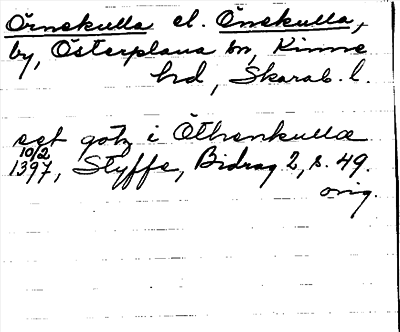 Örnekulla el. Önskulla,
by, Österplana sn, Kinne
hd, Skarab. l.
set götz i Öthenkullæ
10/2
1397, Styffe, Bidrag 2, s. 49.
orig.